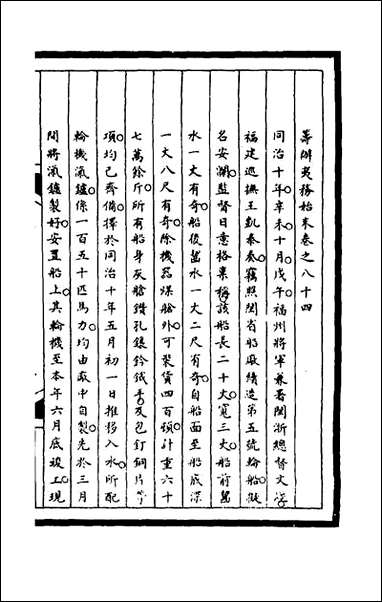 籌辦夷務始末卷之八十四
同治十年辛未十月戊午福州將軍兼署閩浙總督文煜
福建巡撫王凱泰奏竊照閩省船廠續造第五號輪船擬
名安瀾監督日意格稟稱該船長二十丈寬三丈船前舀
水一丈有奇船後舀水一丈二尺有奇自船面至船底深
一丈八尺有奇除機器煤艙外可裝貨四百頓計重六十
七萬餘斤所有船身灰艙鑽孔鑲鈴鐵脅及包釘銅片等
項均已齊備擇於同治十年五月初一日推移入水所配
輪機氣鑪係一百五十匹馬力均由廠中自製先於三月
間將氣鑪製好安置船上其輪機至本年六月底竣工現